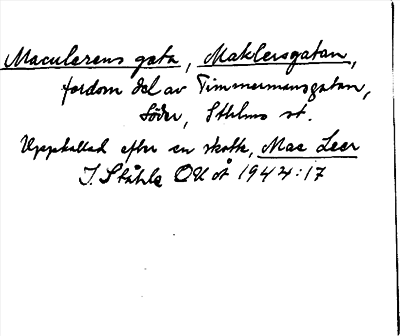 Maculerens gata, Maklersgatan,
fordom del av Timmermansgatan,
Söder, Sthlms st.
Uppkallad efter en skotte, Mac Leer
I. Ståhle OUÅ 1942:17